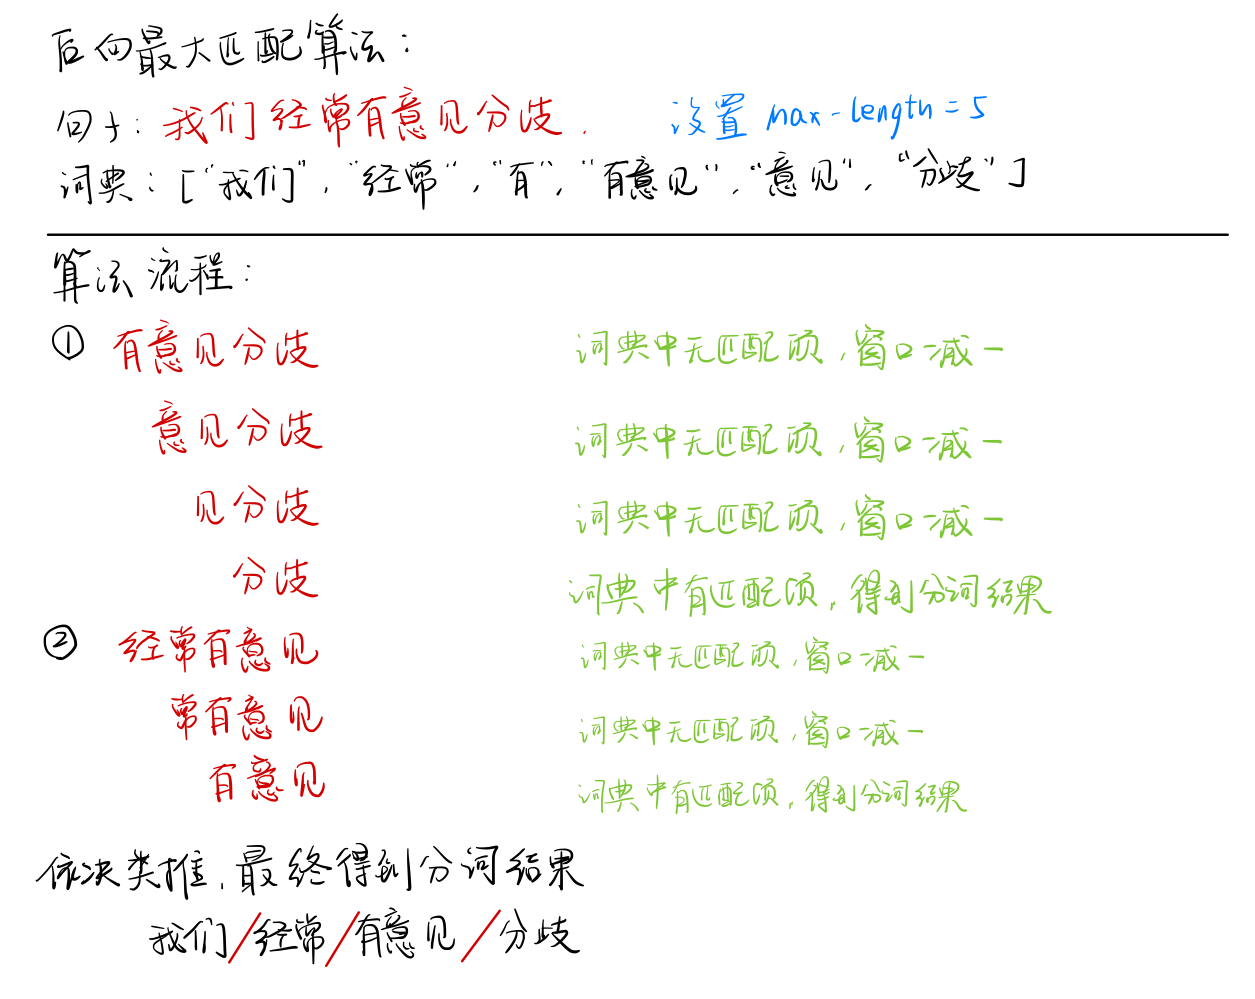 后向最大匹配算法：
句子：我们经常有意见分歧. 设置 max-length=5
词典：["我们"，"经常"，"有"，"有意见"，"意见"，"分歧"]
算法流程：
① 有意见分歧 词典中无匹配项，窗口减一
意见分歧 词典中无匹配项，窗口减一
见分歧 词典中无匹配项，窗口减一
分歧 词典中有匹配项，得到分词结果
② 经常有意见 词典中无匹配项，窗口减一
常有意见 词典中无匹配项，窗口减一
有意见 词典中有匹配项，得到分词结果
依次类推，最终得到分词结果
我们/经常/有意见/分歧